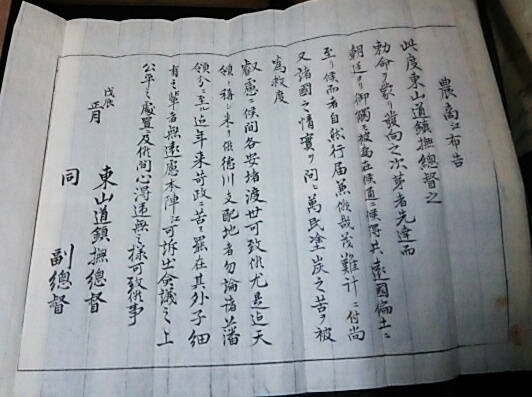 農商江布告
此度東山道鎮撫總督之
勅命ヲ蒙リ發向之次第者先達而
朝廷ヨリ御觸ニ被為在候通ニ候得共遠國偏土ニ
至リ候而者自然行届兼候哉茂難計ニ付尚
又諸國之情實ヲ問ヒ萬民塗炭之苦ヲ被
為救度
叡慮ニ候間各安堵渡世可致候尤是迄天
領ト稱シ来リ候徳川支配地者勿論諸藩
領分ニ至ル迄年来苛政ニ苦ミ罷在其外子細
有之輩者無遠慮本陣江可訴出僉議之上
公平之處置ニ及候間心得違無之様可致候事
戊辰
正月
東山道鎮撫總督
同 副總督